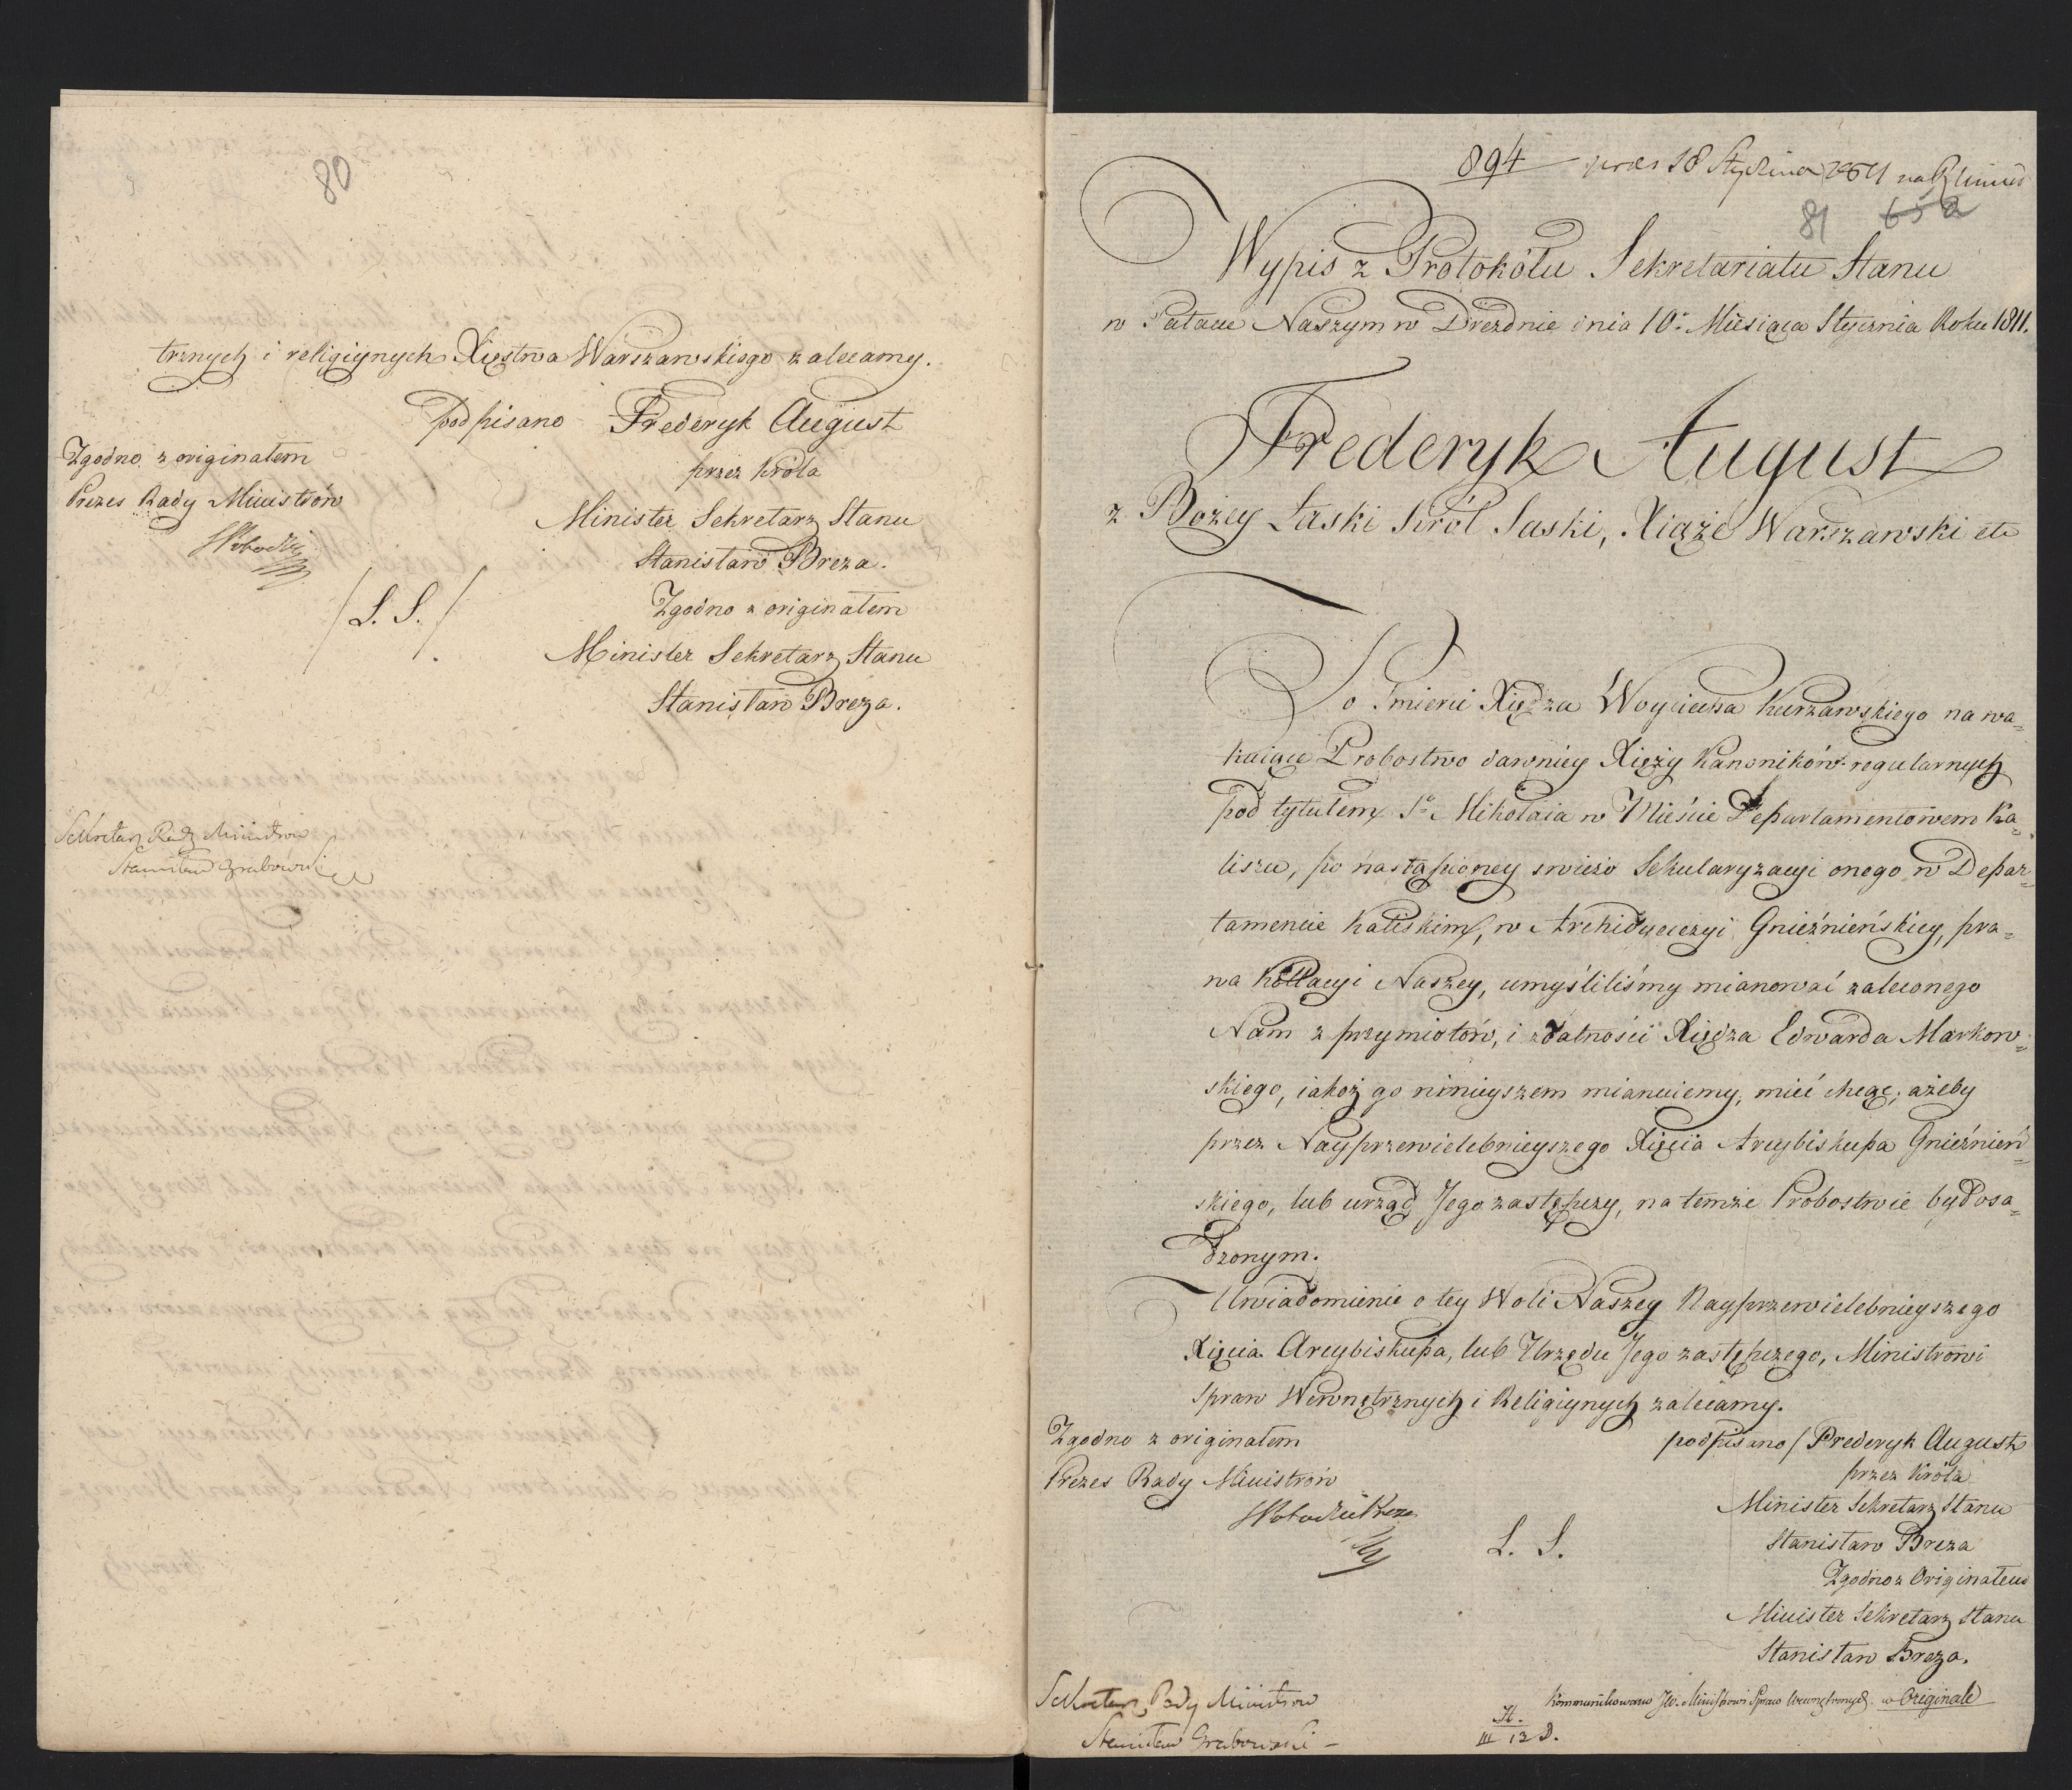 80
trznych i religiynych Xięstwa Warszawskiego zalecamy.
podpisano Frederyk August
Zgodno z originałem
przez Króla
Prezes Rady Ministrów
Minister Sekretarz Stanu
Stanisław Breza.
/L. S./
Zgodno z originałem
Minister Sekretarz Stanu
Stanisław Breza.
Sekretarz Rady Ministrów
Stanisław Grabowski
894 18 Stycznia
81
Wypis z Protokółu Sekretariatu Stanu
w Pałacu Naszym w Dreznie dnia 10º Miesiąca Stycznia Roku 1811.
Frederyk August
z Bożey Łaski Król Saski, Xiąże Warszawski etc
Po śmierci Xiędza Woyciecha Kurzawskiego na wa=
kuiące Probostwo dawniéy Xięży Kanoników regularnych
pod tytułem Sº Mikołaia w Mieście Departamentowem Ka=
liszu, po nastąpioney świeżo Sekularyzacyi onego w Depar=
tamencie Kaliskim, w Archidyecezyi Gnieźnieńskiey, pra=
wa Kollacyi Naszey, umyśliliśmy mianować zaleconego
Nam z przymiotów, i zdatności Xiędza Edwarda Markow=
skiego, iakoż go ninieyszem mianuiemy, mieć chcąc, ażeby
przez Nayprzewielebnieyszego Xięcia Arcybiskupa Gnieźnień=
skiego, lub urząd Jego zastępczy, na temże Probostwie był osa=
dzonym.
Uwiadomienie o tey Woli Naszey Nayprzewielebnieyszego
Xięcia Arcybiskupa, lub Urzędu Jego zastępczego, Ministrowi
Spraw Wewnętrznych i Religiynych zalecamy.
Zgodno z originałem
podpisano / Frederyk August
Prezes Rady Ministrów
przez Króla
Minister Sekretarz Stanu
L. S.
Stanisław Breza
Zgodno z Originałem
Minister Sekretarz Stanu
Stanisław Breza.
Sekretarz Rady Ministrów
Stanisław Grabowski
Kommunikowano JW. Ministrowi Spraw Wewnętrznych w Originale
III 12 d.